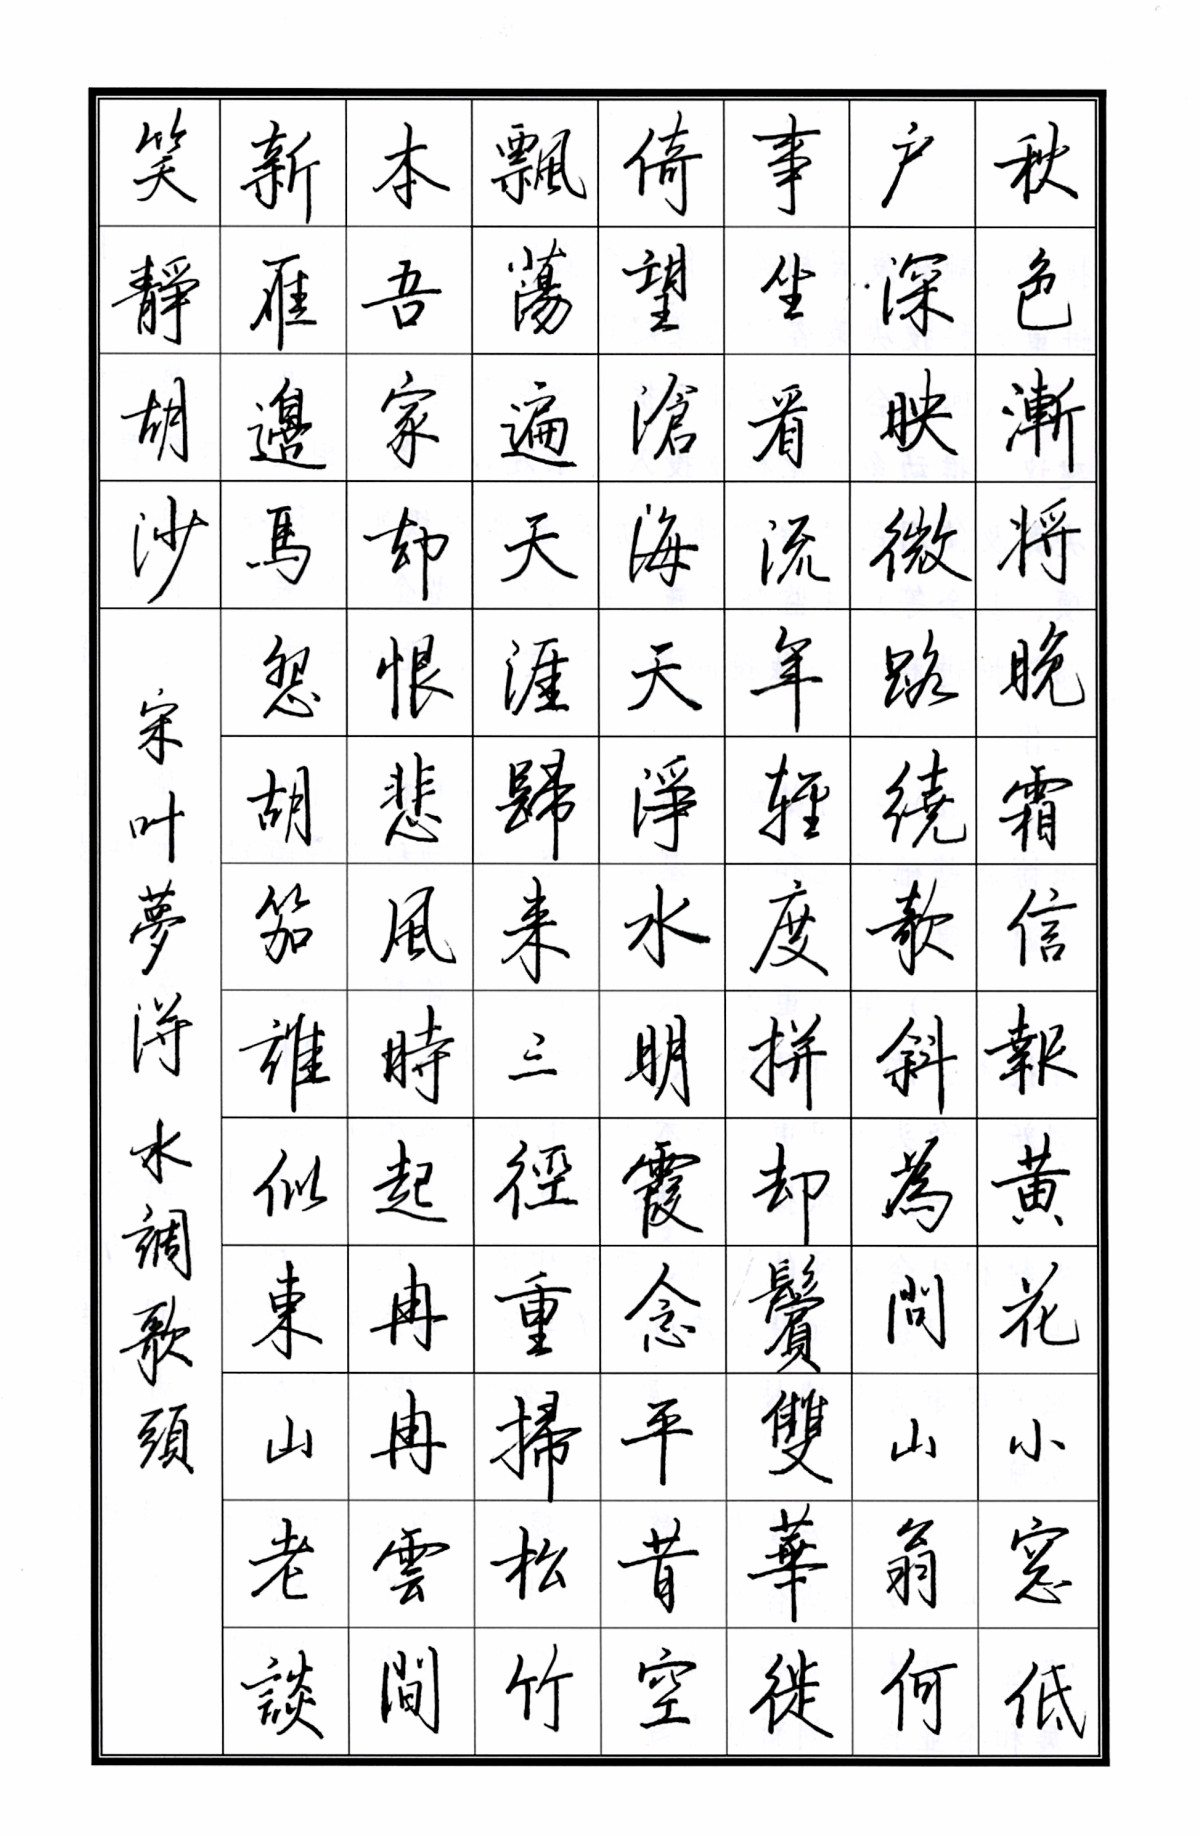 秋色漸將晚霜信報黄花小窓低
户深映微路繞欹斜為問山翁何
事坐看流年輕度拼却鬢雙華徙
倚望滄海天淨水明霞念平昔空
飄蕩遍天涯歸来三徑重掃松竹
本吾家却恨悲風時起冉冉雲間
新雁邊馬怨胡笳誰似東山老談
笑靜胡沙
宋叶夢得水調歌頭